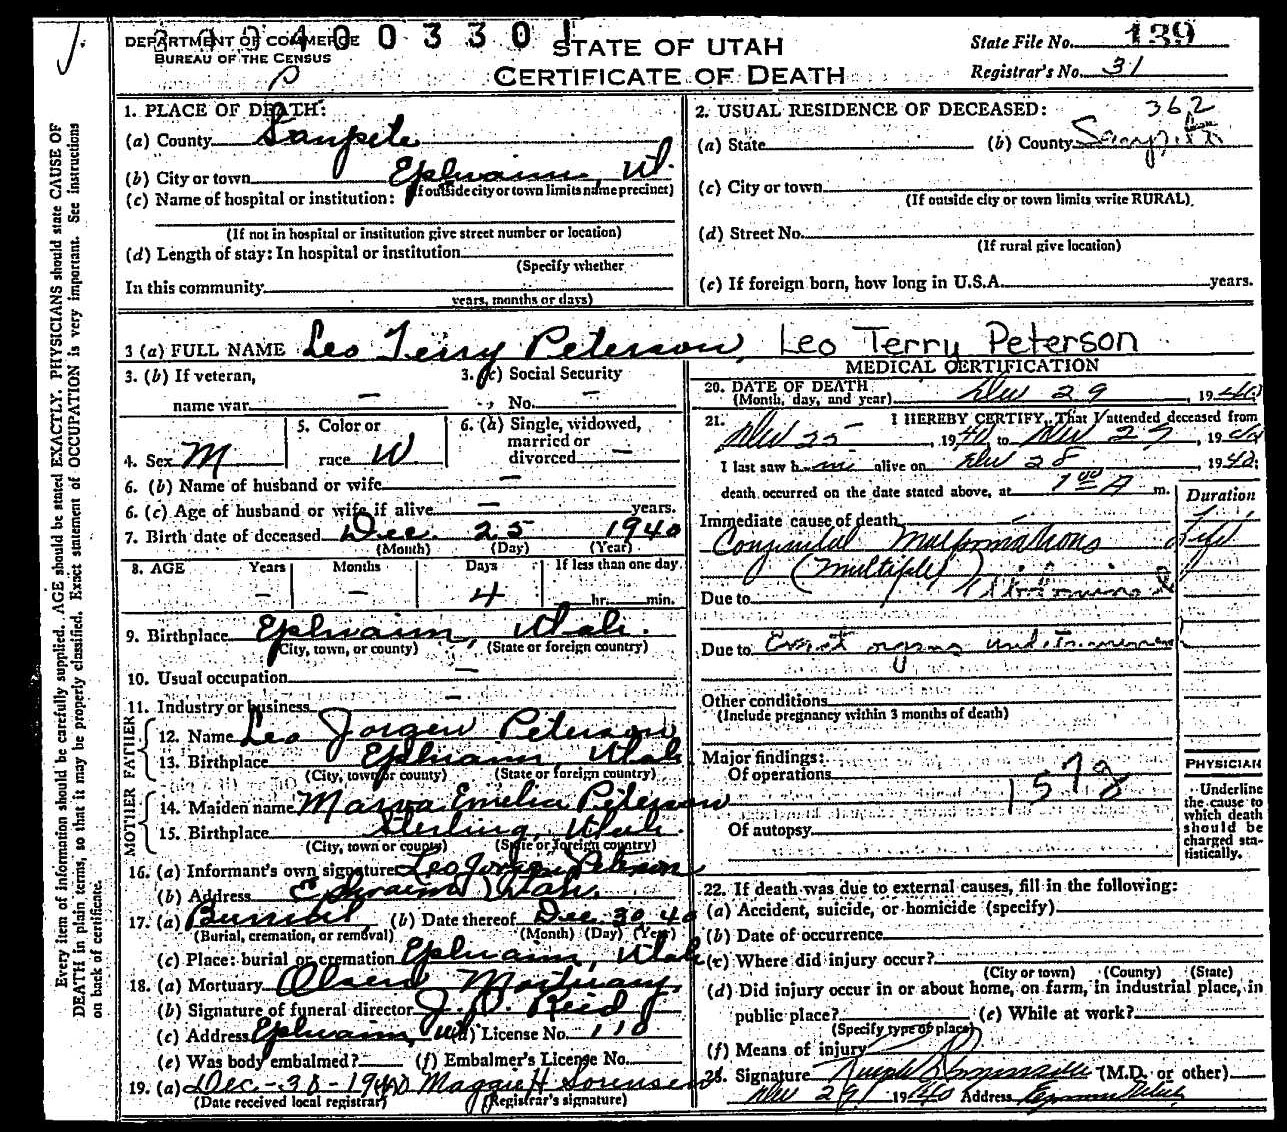 J.
DEPARTMENT OF COMMERCE
BUREAU OF THE CENSUS
STATE OF UTAH
CERTIFICATE OF DEATH
State File No. 139
Registrar's No. 31
1. PLACE OF DEATH:
(a) County Sanpete
(b) City or town Ephraim, Ut.
(If outside city or town limits name precinct)
(c) Name of hospital or institution:
(If not in hospital or institution give street number or location)
(d) Length of stay: In hospital or institution
(Specify whether
In this community
years, months or days)
2. USUAL RESIDENCE OF DECEASED: 362
(a) State (b) County
(c) City or town
(If outside city or town limits write RURAL)
(d) Street No.
(If rural give location)
(e) If foreign born, how long in U.S.A. years.
3 (a) FULL NAME Leo Terry Peterson, Leo Terry Peterson
3. (b) If veteran, name war —
3. (c) Social Security No. —
4. Sex M
5. Color or race W
6. (a) Single, widowed, married or divorced —
6. (b) Name of husband or wife —
6. (c) Age of husband or wife if alive — years.
7. Birth date of deceased Dec. 25 1940
(Month) (Day) (Year)
8. AGE Years Months Days If less than one day
— — 4 hr. min.
9. Birthplace Ephraim, Utah.
(City, town, or county) (State or foreign country)
10. Usual occupation —
11. Industry or business —
FATHER
12. Name Leo Jorgen Peterson
13. Birthplace Ephraim, Utah.
(City, town or county) (State or foreign country)
MOTHER
14. Maiden name Marva Emelia Peterson
15. Birthplace Sterling, Utah.
(City, town or county) (State or foreign country)
16. (a) Informant's own signature Leo Jorgen Peterson
(b) Address Ephraim Utah.
17. (a) Burrial (b) Date thereof Dec 30 40
(Burial, cremation, or removal) (Month) (Day) (Year)
(c) Place: burial or cremation Ephraim, Utah
18. (a) Mortuary Olsen Mortuary.
(b) Signature of funeral director J. D. Reid
(c) Address Ephraim, Ut (d) License No. 110
(e) Was body embalmed? (f) Embalmer's License No.
19. (a) Dec.-30-1940 Maggie H Sorensen
(Date received local registrar) (Registrar's signature)
MEDICAL CERTIFICATION
20. DATE OF DEATH
(Month, day, and year) Dec 29, 1940
21. I HEREBY CERTIFY, That I attended deceased from
Dec 25, 1940 to Dec 29, 1940
I last saw him alive on Dec 28 1940;
death occurred on the date stated above, at 1 00 A m.
Duration
Immediate cause of death
Congenital Malformations Life
(Multiple)
Due to
Due to organs
Other conditions
(Include pregnancy within 3 months of death)
Major findings:
Of operations
157
Of autopsy
PHYSICIAN
Underline the cause to which death should be charged statistically.
22. If death was due to external causes, fill in the following:
(a) Accident, suicide, or homicide (specify)
(b) Date of occurrence
(c) Where did injury occur?
(City or town) (County) (State)
(d) Did injury occur in or about home, on farm, in industrial place, in
public place? (e) While at work?
(Specify type of place)
(f) Means of injury
23. Signature (M.D. or other)
Dec 29, 1940 Address
Every item of information should be carefully supplied. AGE should be stated EXACTLY. PHYSICIANS should state CAUSE OF
DEATH in plain terms, so that it may be properly classified. Exact statement of OCCUPATION is very important. See instructions
on back of certificate.